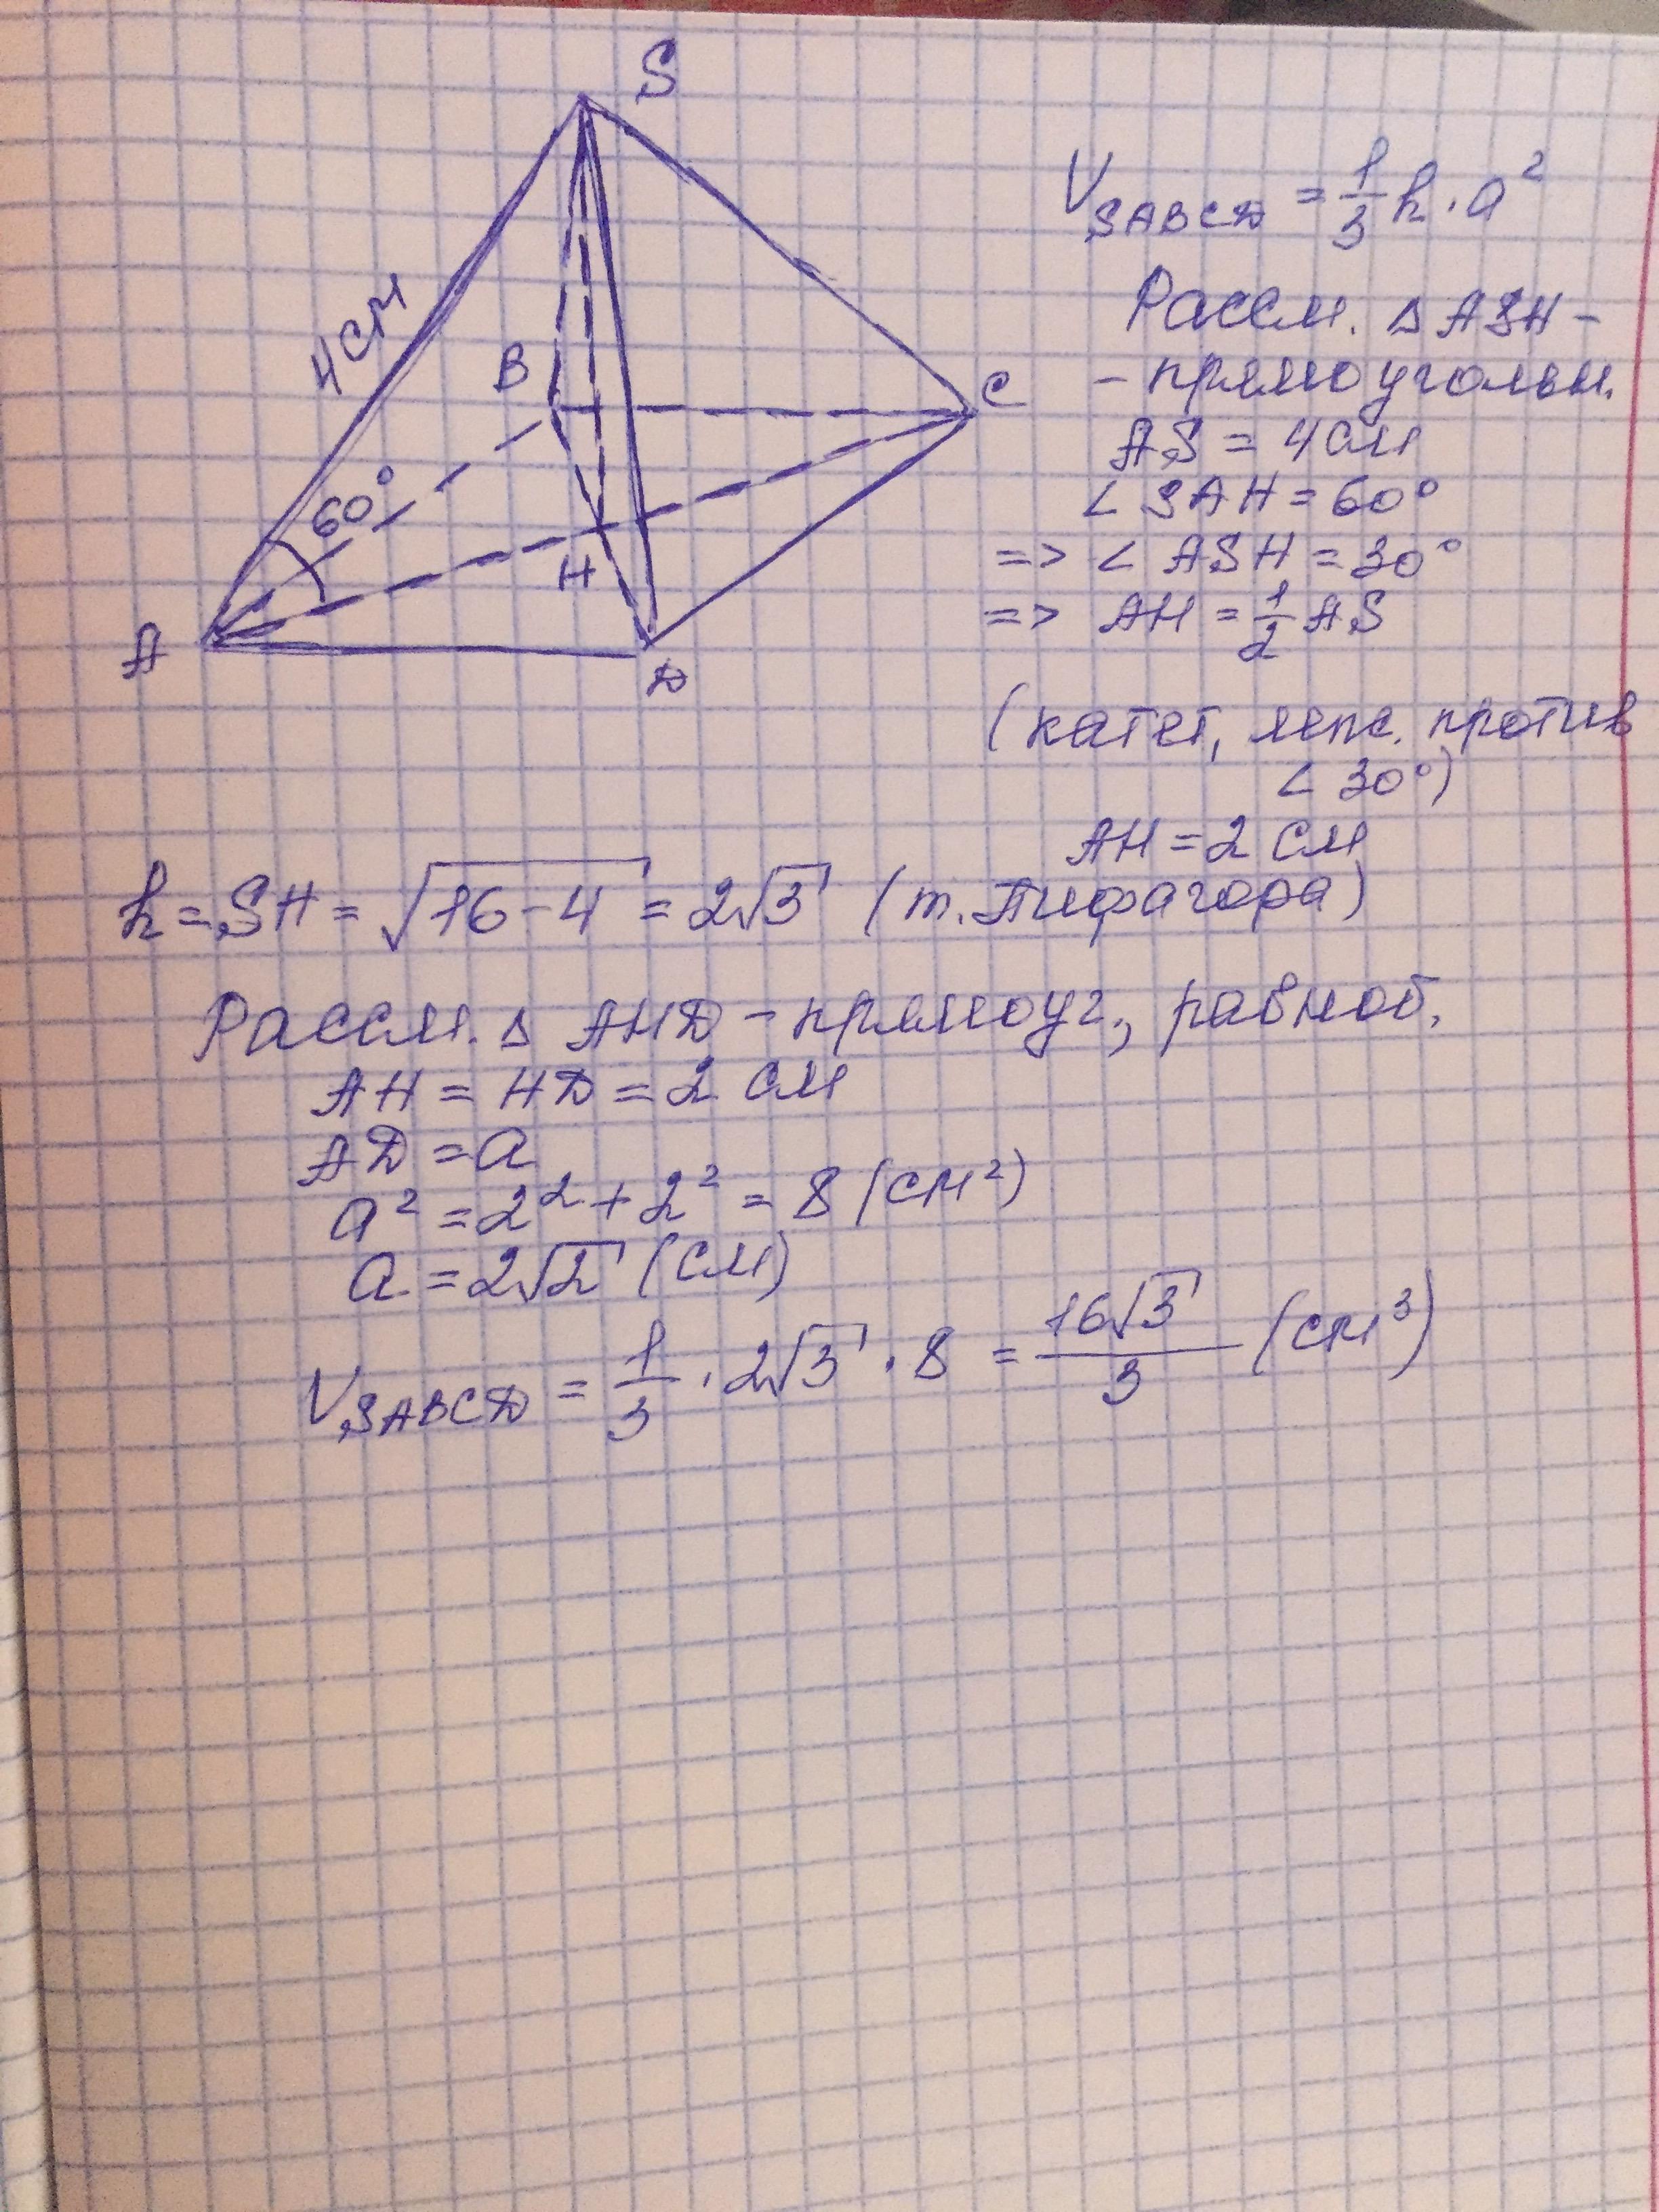 S
4 см
B
C
60°
H
A
D
V_SABCD = 1/3 h · a²
Рассм. △ ASH –
– прямоугольн.
AS = 4 см
∠ SAH = 60°
=> ∠ ASH = 30°
=> AH = 1/2 AS
(катет, леж. против
∠ 30°)
AH = 2 см
h = SH = √(16 – 4) = 2√3 (т. Пифагора)
Рассм. △ AHD – прямоуг., равноб.
AH = HD = 2 см
AD = a
a² = 2² + 2² = 8 (см²)
a = 2√2 (см)
V_SABCD = 1/3 · 2√3 · 8 = 16√3/3 (см³)